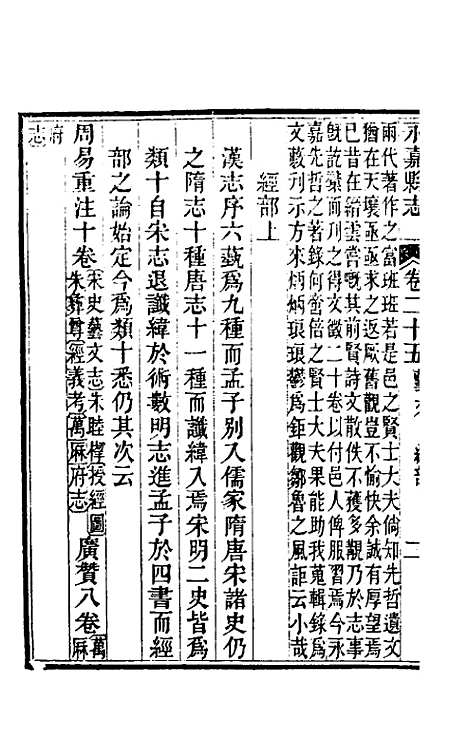 永嘉縣志 卷二十五 藝文 經部 二
兩代著作之富班班若是邑之賢士大夫倘知先哲遺文
猶在天壤亟亟求之返厥舊觀豈不愉快余誠有厚望焉
已昔在縉雲嘗慨其前賢詩文散佚不獲多觀乃於志事
旣訖彙而刊之得文徵二十卷以付邑人俾服習焉今永
嘉先哲之著錄何啻倍之賢士大夫果能助我蒐輯錄爲
文藪刊示方來炳炳琅琅鬱爲鉅觀鄒魯之風詎云小哉
經部上
漢志序六藝爲九種而孟子別入儒家隋唐宋諸史仍
之隋志十種唐志十一種而讖緯入焉宋明二史皆爲
類十自宋志退讖緯於術數明志進孟子於四書而經
部之論始定今爲類十悉仍其次云
周易重注十卷宋史藝文志朱睦㮮授經圖朱彝尊經義考萬厤府志 廣贊八卷萬厤
府志